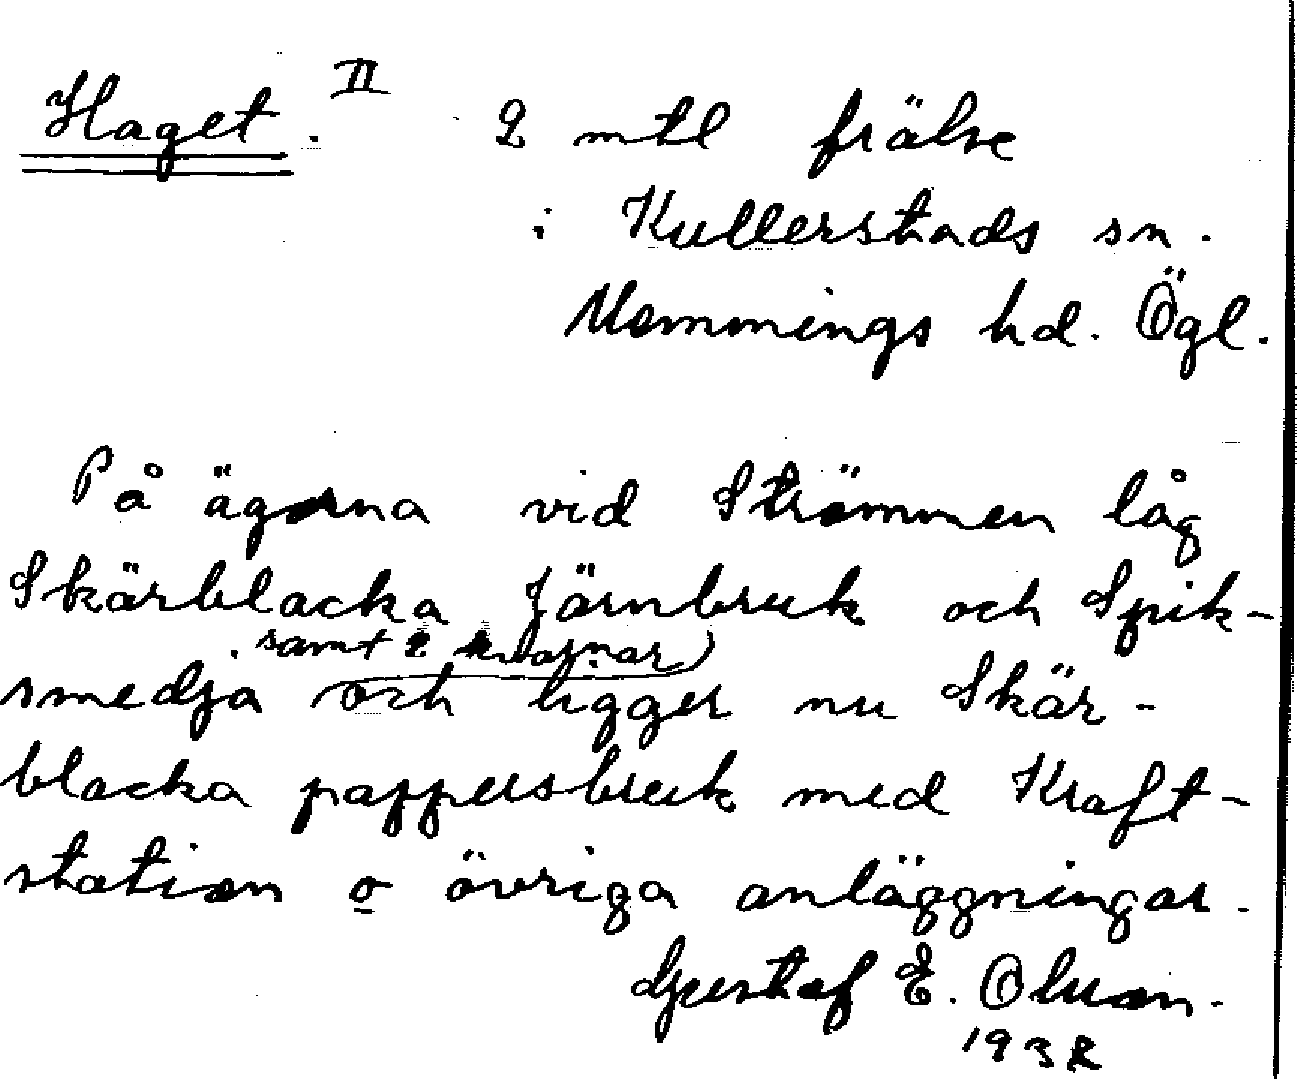 Haget. II 2 mtl frälse
i Kullerstads sn.
Memmings hd. Ögl.
På ägorna vid Strömmen låg
Skärblacka Järnbruk och Spik-
samt 2 kvarnar
smedja och ligger nu Skär-
blacka pappersbruk med Kraft-
station o övriga anläggningar.
Gustaf E. Olsson.
1932